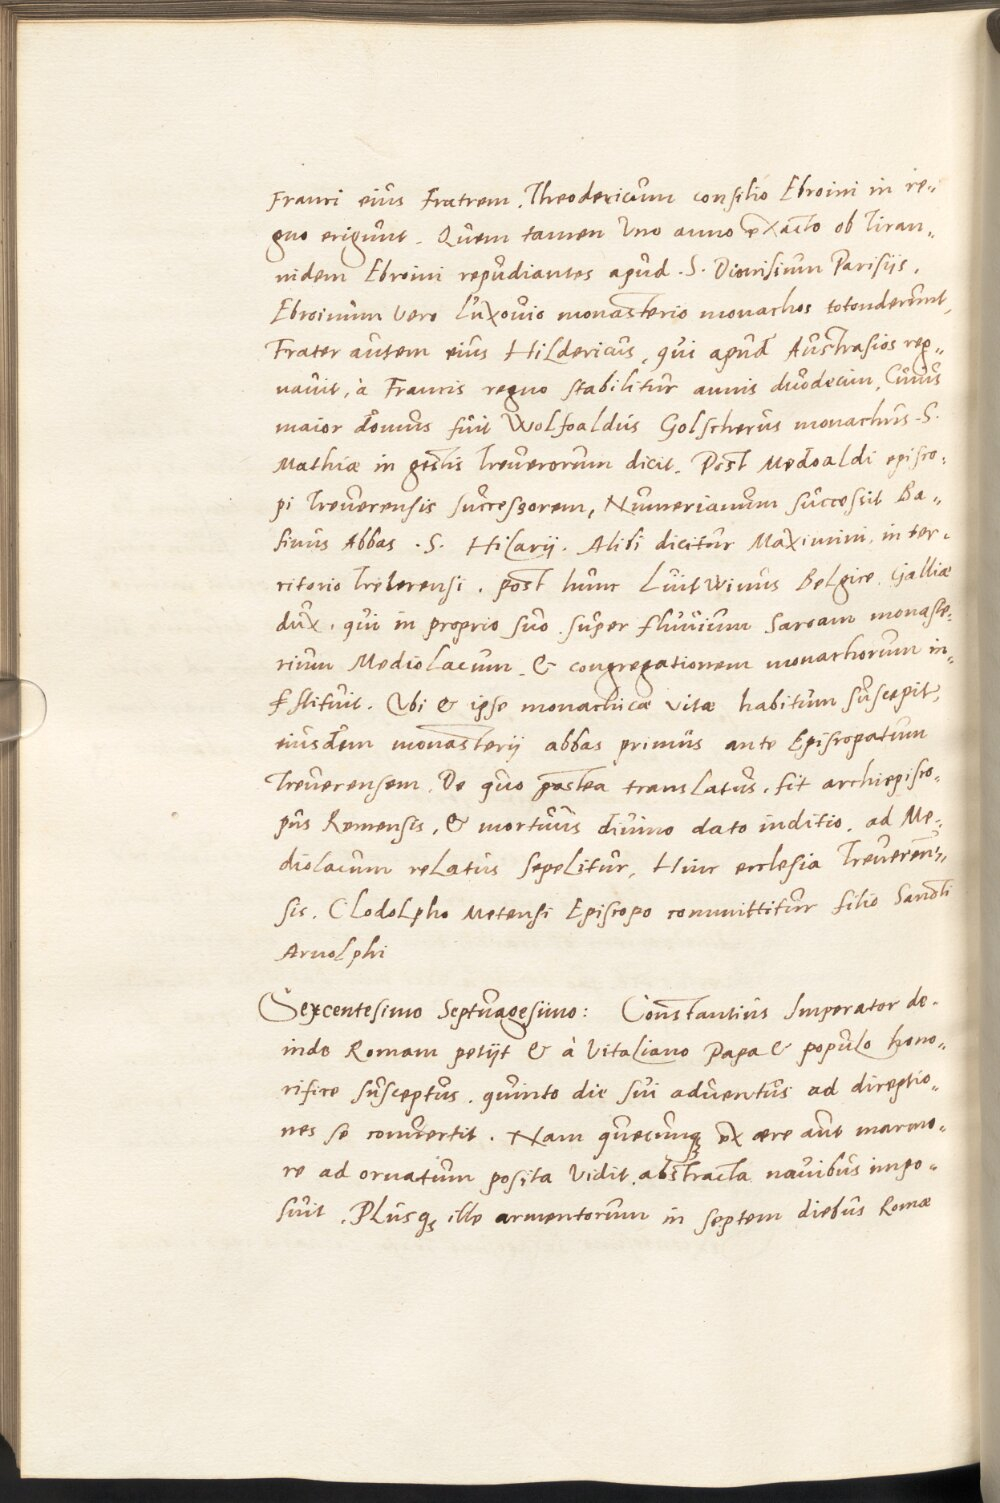 Franci eius Fratrem. Theodericum consilio Ebroini in re„
gno erigunt. Quem tamen Uno anno exacto ob Tiran„
nidem Ebroini repudiantes apud .S. Dionisium Parisijs,
Ebroinum vero Luxouio monasterio monachos totonderunt,
Frater autem eius Hildericus, qui apud Austrasios reg„
nauit, à Francis regno stabilitur annis duodecim, Cuius
maior domus fuit Wolfoaldus Golscherus monachus .S.
Mathiæ in gestis Treuerorum dicit. Post Medoaldi episco„
pi Treuerensis successorem, Numerianum successit Ba„
sinus Abbas .S. Hilarij. Alibi dicitur Maximini, in ter„
ritorio Treberensi. post hunc Luitwinus Belgice Galliæ
dux, qui in proprio suo super fluuium Saroam monaste„
rium Mediolacum. & congregationem monachorum in„
stituit. Ubi & ipse monachicæ vitæ habitum suscepit,
eiusdem monasterij abbas primus ante Episcopatum
Treuerensem. De quo postea translatus, fit archiepisco„
pus Remensis, & mortuus diuino dato inditio, ad Me„
diolacum relatus sepelitur, Hinc ecclesia Treueren„
sis. Clodolpho Metensi Episcopo committitur filio Sancti
Arnolphi
Sexcentesimo Septuagesimo: Constantius Imperator de„
inde Romam petijt & à Vitaliano Papa & populo hono„
rifice susceptus. quinto die sui aduentus ad direptio„
nes se conuertit. Nam quecunq; ex ære aut marmo„
re ad ornatum posita vidit, abstracta nauibus impo„
suit. Plusq; ille armentorum in septem diebus Romæ